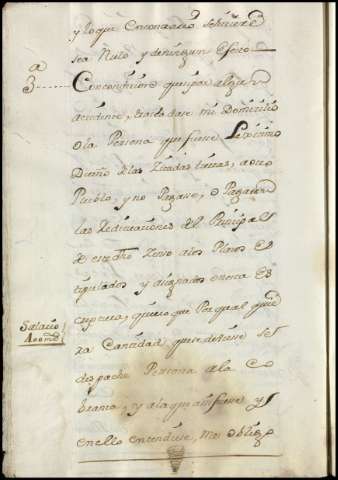 y lo que en contrario se hiciere
sea Nulo y de ningun efecto
3ª
Con condicion que si por algun
accidente, trasladase mi Domicilio
o la Persona que fuese Lexitimo
Dueño de las citadas tierras, a otro
Pueblo, y no Pagase, o Pagaren
las Redituaciones del Principal
de este dho Zenso a los Plazos es
tipulados y asignados en esta Es
critura, quiero que Por qualquie
ra Cantidad que se debiese se
Salario
despache Persona a la Co
branza, y a la que asi fuese y
en ello entendiese, me obligo